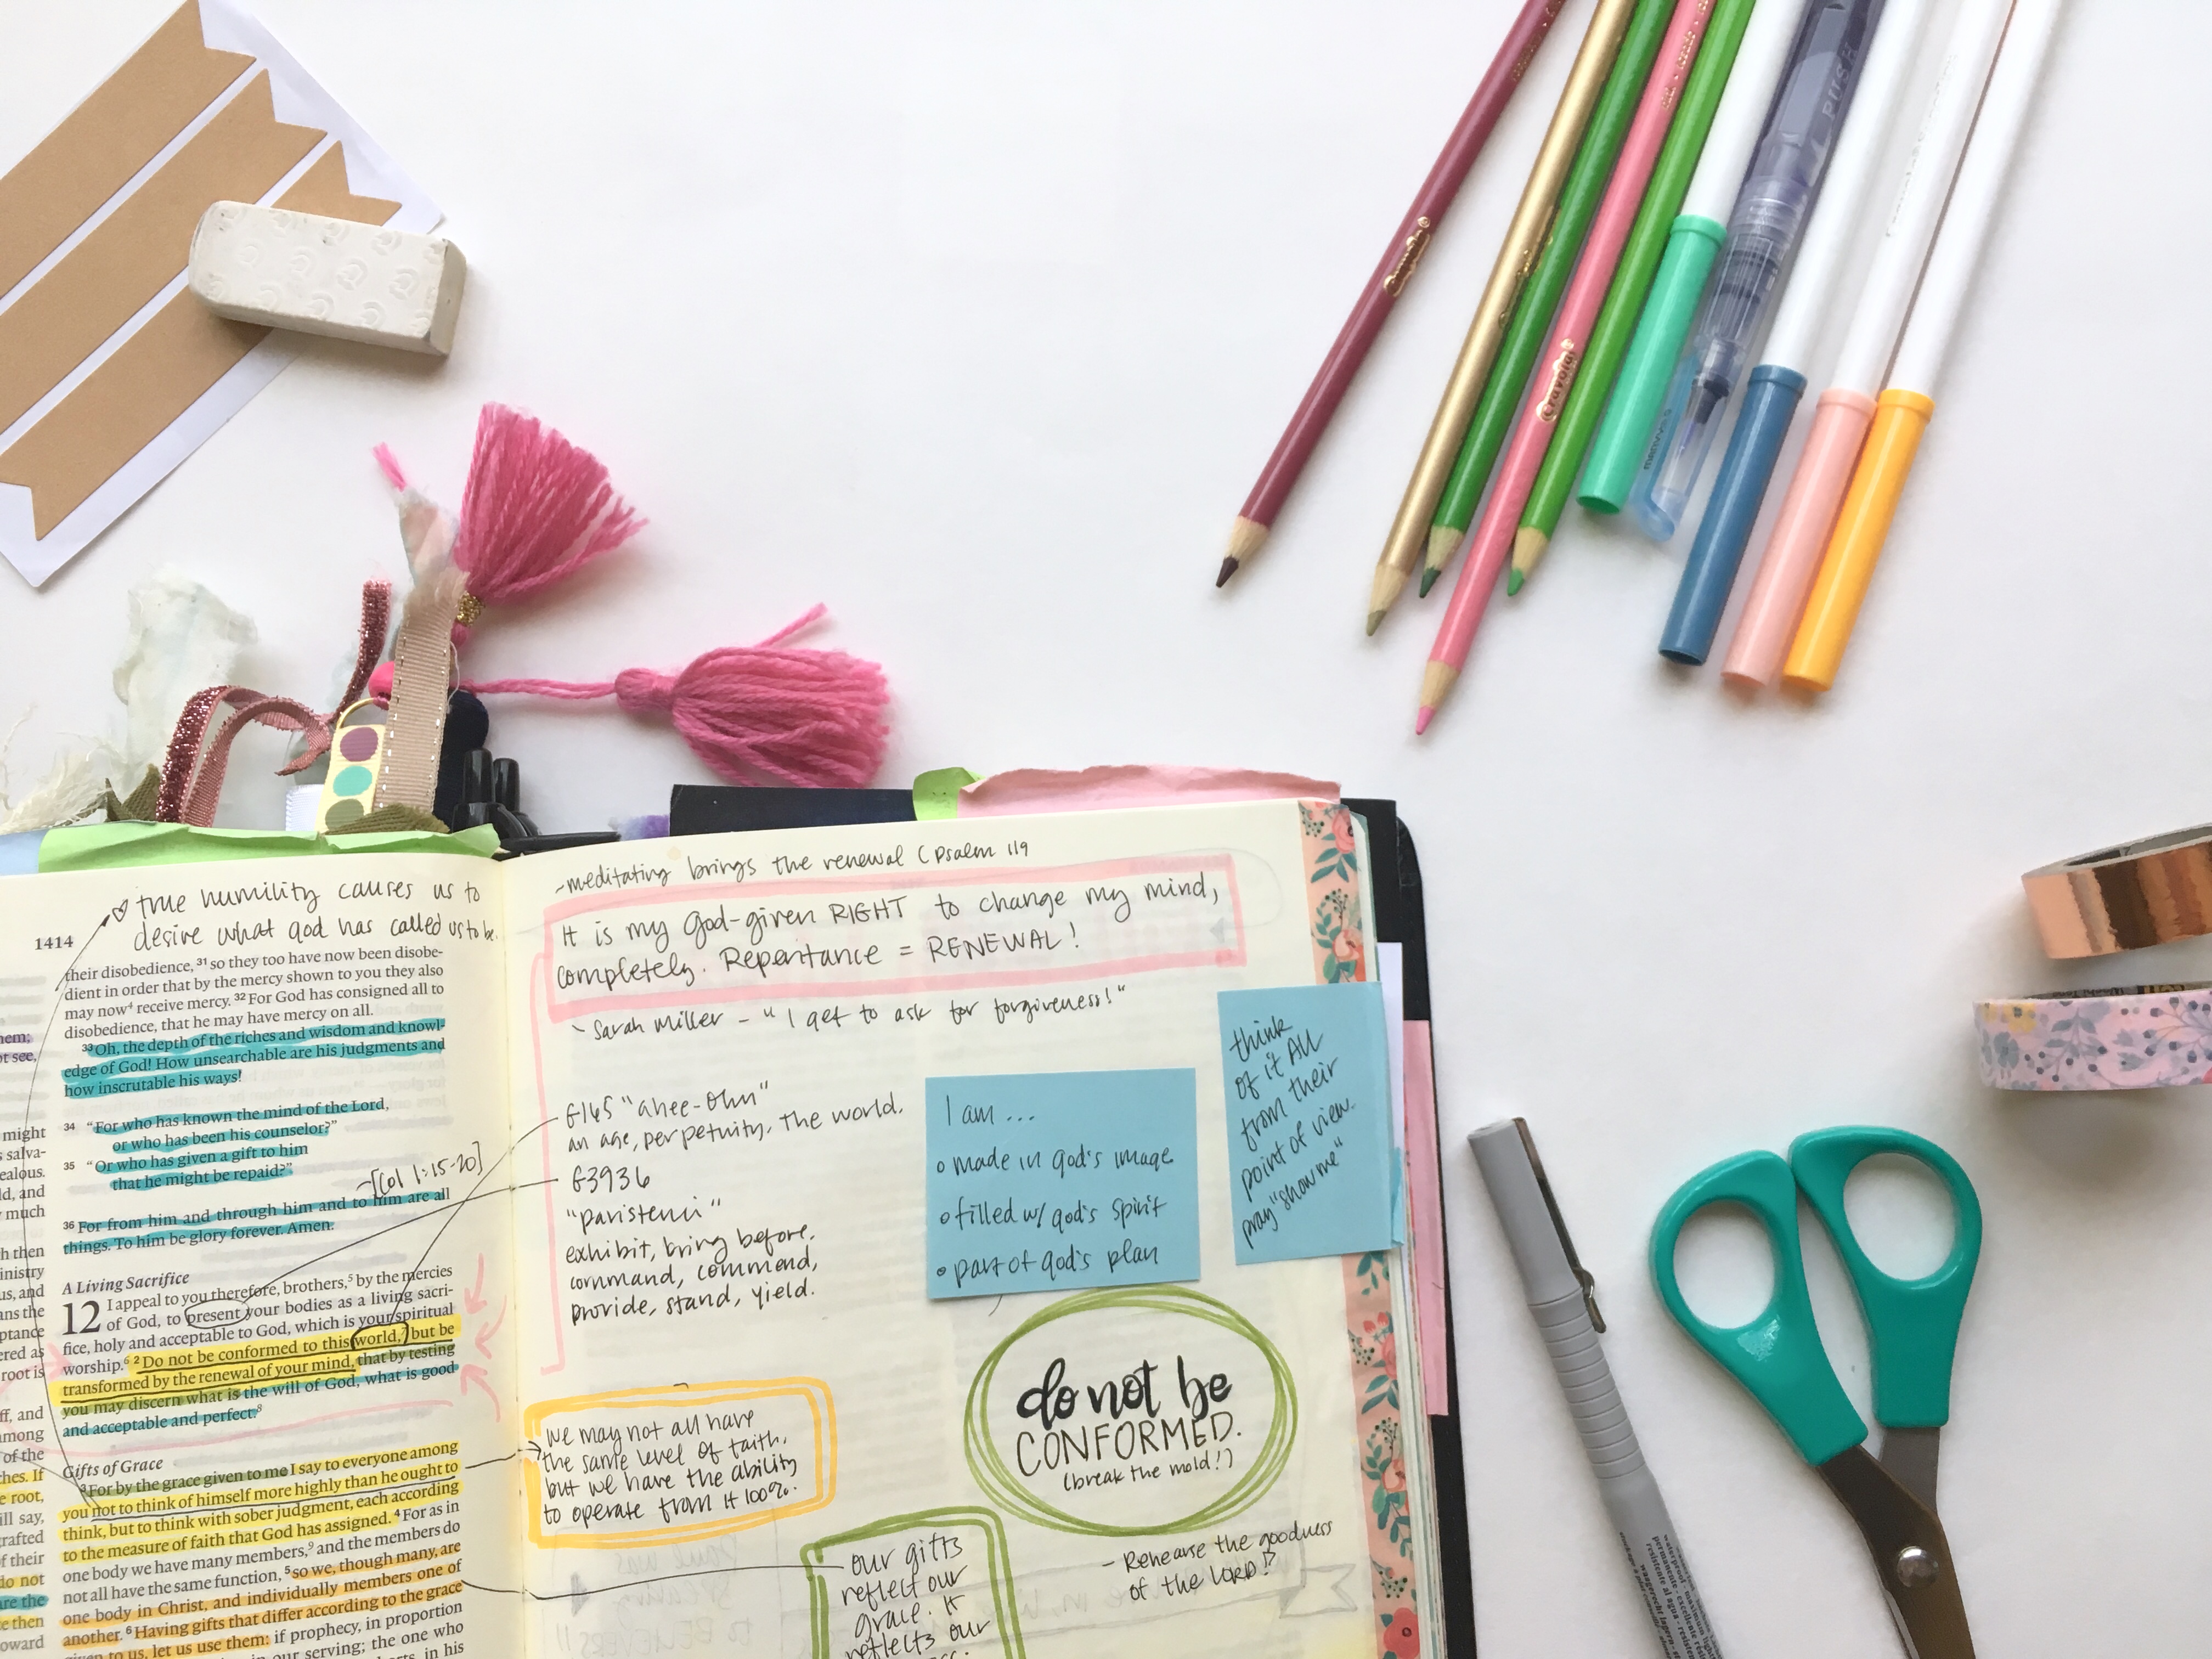 ♡ true humility causes us to
desire what god has called us to be.
1414
their disobedience, ³¹ so they too have now been disobe-
dient in order that by the mercy shown to you they also
may now⁴ receive mercy. ³² For God has consigned all to
disobedience, that he may have mercy on all.
³³ Oh, the depth of the riches and wisdom and knowl-
edge of God! How unsearchable are his judgments and
how inscrutable his ways!
34 “For who has known the mind of the Lord,
or who has been his counselor?”
35 “Or who has given a gift to him
that he might be repaid?”
~[Col 1:15-20]
36 For from him and through him and to him are all
things. To him be glory forever. Amen.
A Living Sacrifice
12 I appeal to you therefore, brothers,⁵ by the mercies
of God, to present your bodies as a living sacri-
fice, holy and acceptable to God, which is your spiritual
worship.⁶ ² Do not be conformed to this world,⁷ but be
transformed by the renewal of your mind, that by testing
you may discern what is the will of God, what is good
and acceptable and perfect.⁸
Gifts of Grace
³ For by the grace given to me I say to everyone among
you not to think of himself more highly than he ought to
think, but to think with sober judgment, each according
to the measure of faith that God has assigned. ⁴ For as in
one body we have many members,⁹ and the members do
not all have the same function, ⁵ so we, though many, are
one body in Christ, and individually members one of
another. ⁶ Having gifts that differ according to the grace
given to us, let us use them: if prophecy, in proportion
in our serving; the one who
in his
them;
not see,
might
salva-
ealous.
and
much
then
ministry
us, and
the
root is
and
among
of the
If
root,
say,
grafted
of their
do not
are the
then
toward
~meditating brings the renewal (Psalm 119
It is my God-given RIGHT to change my mind,
completely. Repentance = RENEWAL!
~ Sarah Miller - "I get to ask for forgiveness!"
G165 "ahee-ohn"
an age, perpetuity, the world.
G3936
"paristemi"
exhibit, bring before,
command, commend,
provide, stand, yield.
I am ...
o made in god's image
o filled w/ god's spirit
o part of god's plan
think
of it All
from their
point of view.
pray "show me"
do not be
CONFORMED.
(break the mold!)
we may not all have
the same level of faith,
but we have the ability
to operate from it 100%.
our gifts
reflect our
grace. it
reflects our
- Rehearse the goodness
of the LORD!
Crayola
Crayola
PUSH